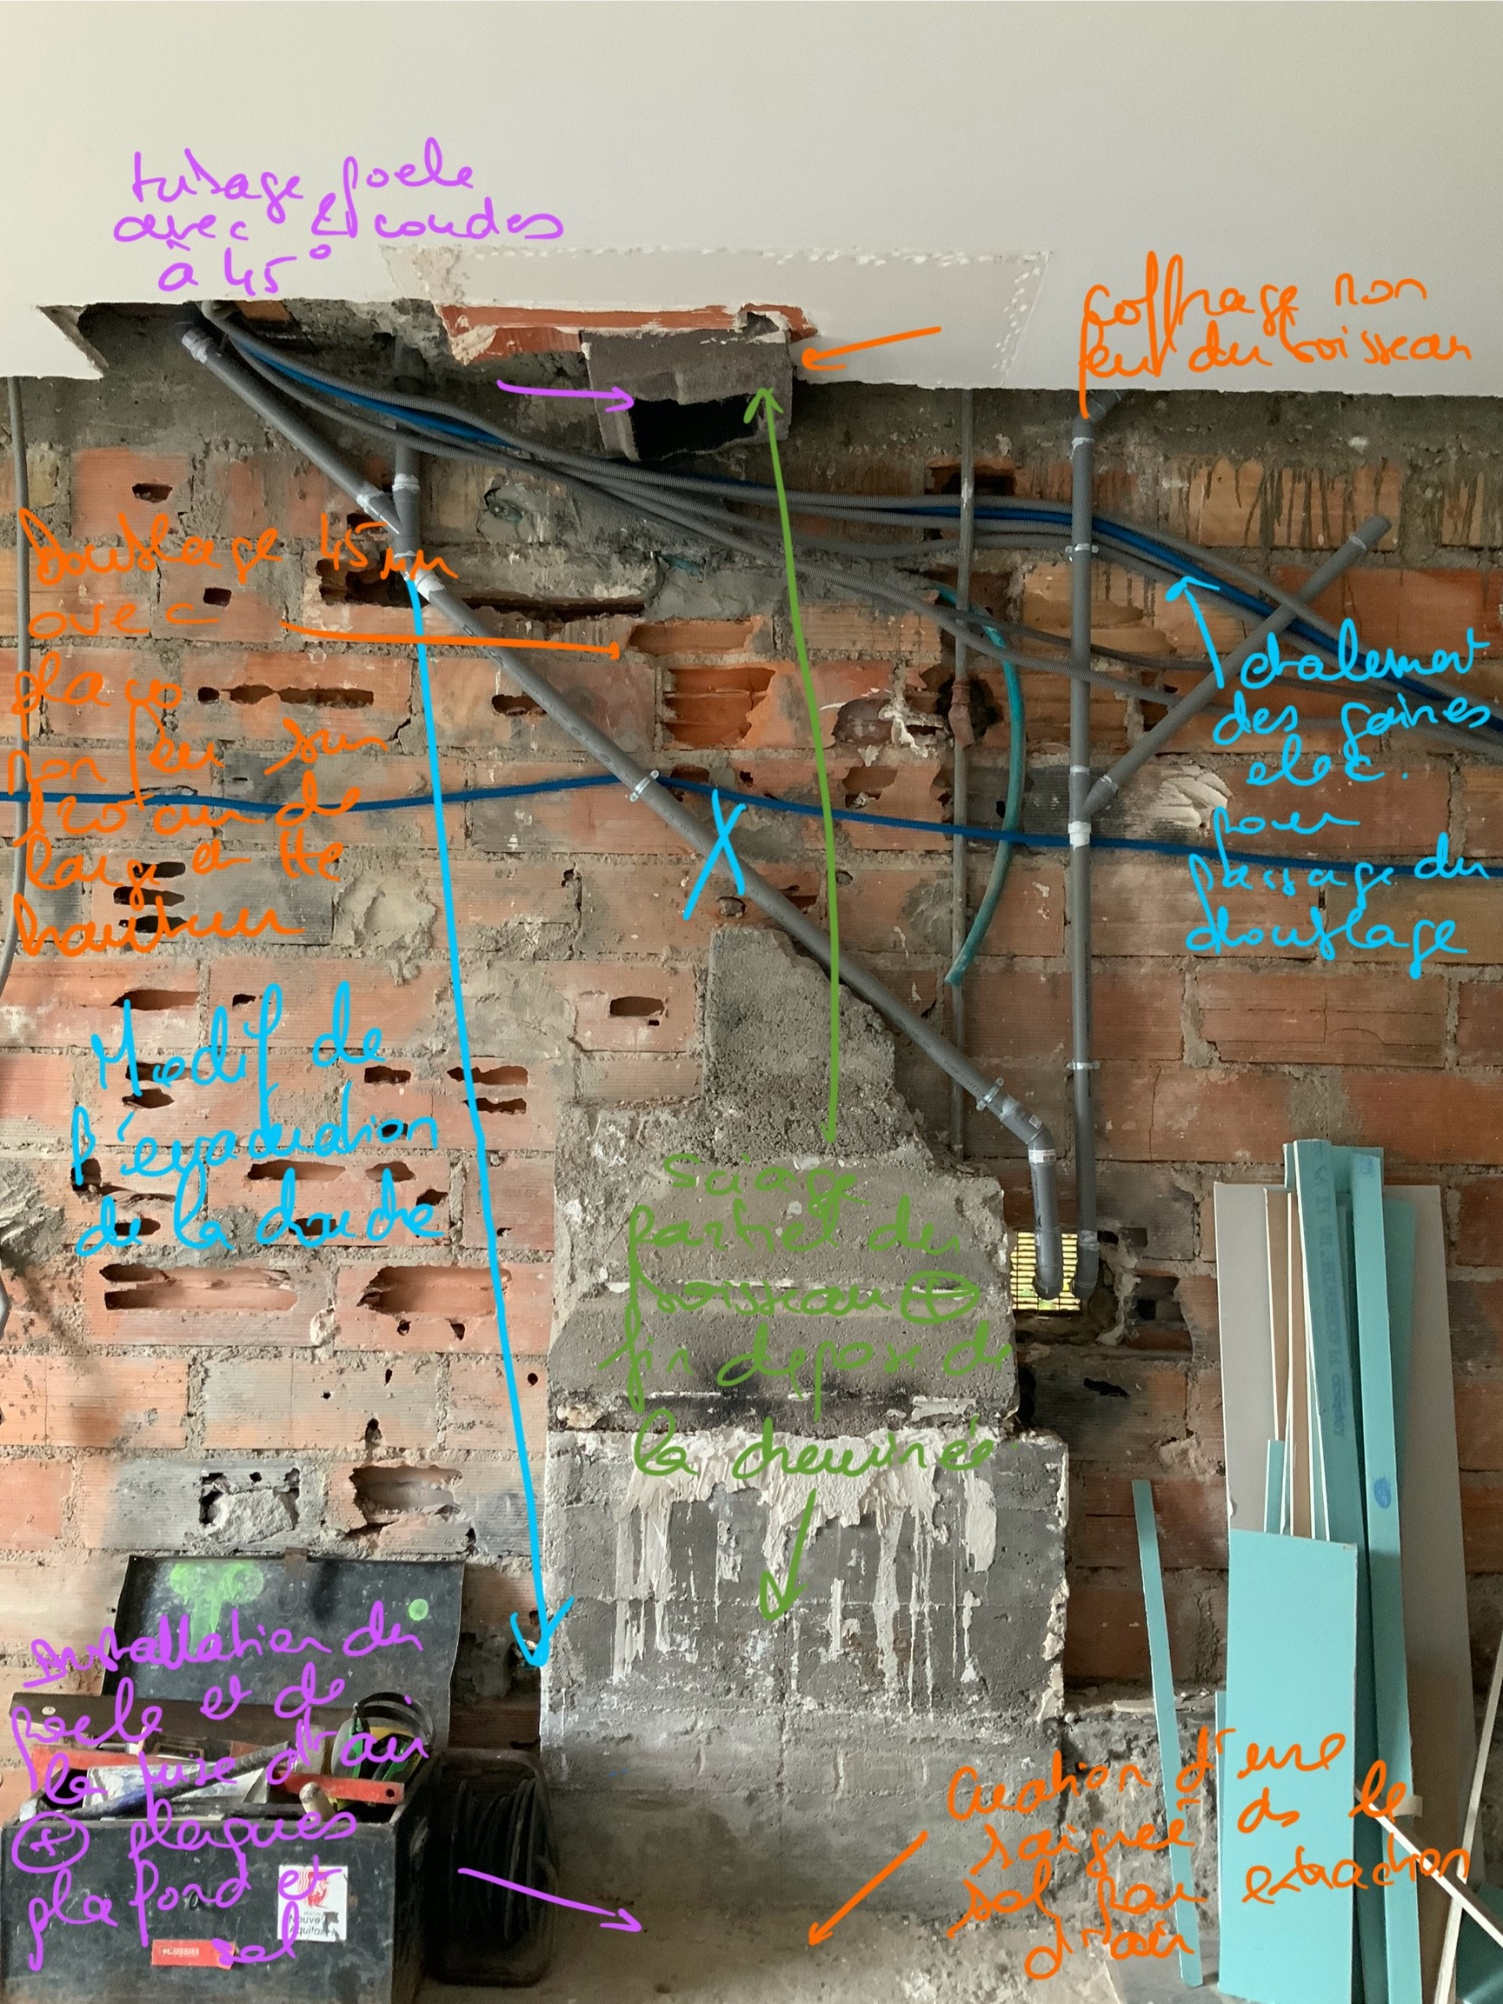 tubage poele
avec 2 coudes
à 45°
coffrage non
feu du boisseau
Doublage 45 mm
avec
placo
non feu sur
1m20 de
large et tte
hauteur
chalement
des gaines
elec.
pour
passage du
doublage
Modif de
l'évacuation
de la douche
sciage
partiel du
boisseau ⊕
fin depose de
la cheminée
Installation du
poele et de
la prise d'air
⊕ plaques
plafond et
sol
Nouvelle
Aquitaine
Creation d'une
saignée ds le
sol pour extraction
d'air